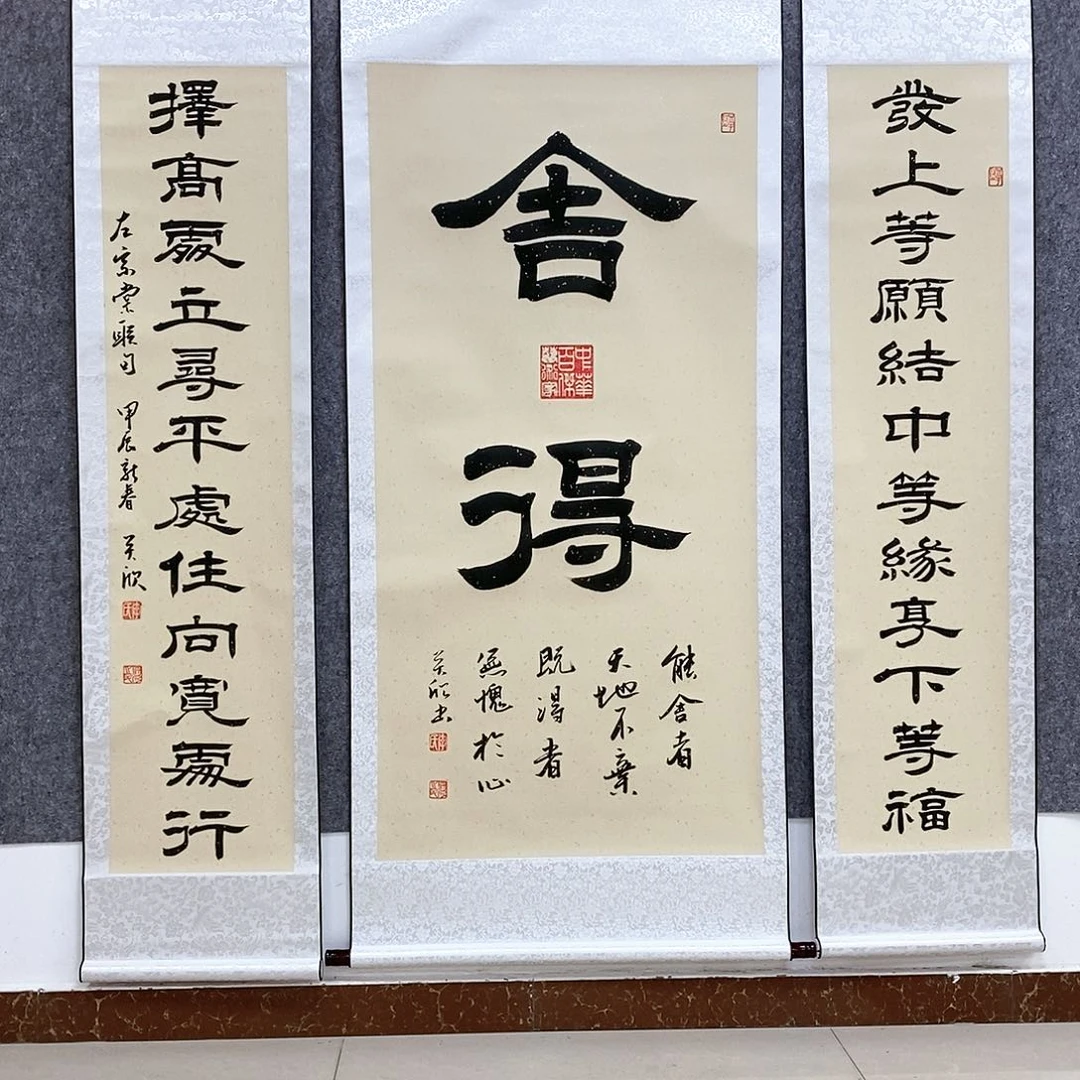 發上等願結中等緣享下等福
舍得
中華百傑藝術家
能舍者
天地不棄
既得者
無愧於心
吴欣书
擇高處立尋平處住向寬處行
左宗棠联句 甲辰新春 吴欣